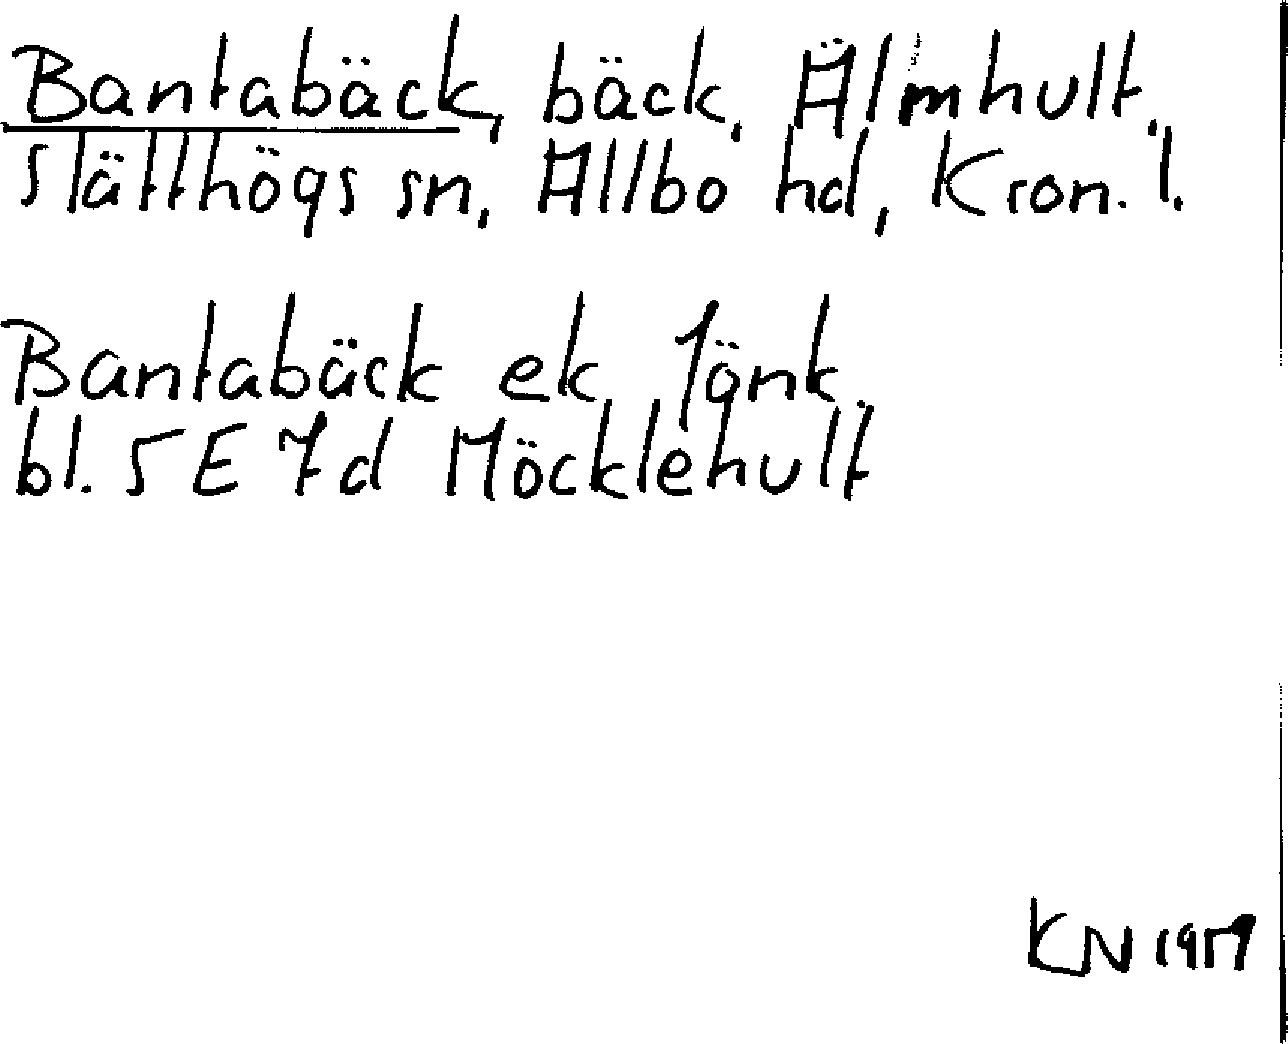 Bantabäck, bäck, Älmhult,
Slätthögs sn, Allbo hd, Kron. l.
Bantabäck ek, Jönk.
bl. 5 E 7 d Möcklehult
KN